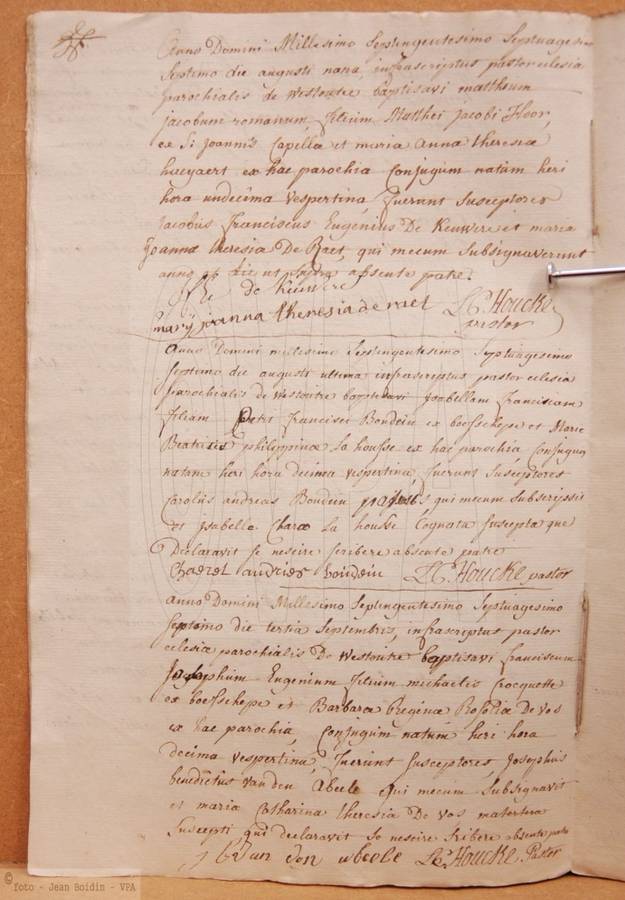 Anno Domini Millesimo Septingentesimo Septuagesimo
Septimo die augusti nona, infrascriptus pastor eclesiæ
parochialis de Westoutre baptisavi mattheum
jacobum romanum, filium Matthei jacobi Floor,
ex St joannis Capella et maria anna theresiæ
hueyaert ex hac parochia Conjugum natum heri
hora undecima vespertina, fuerunt Susceptores
Jacobus Franciscus Eugenius De Keuwere et maria
Joanna theresia De Raet, qui mecum Subsignaverunt
anno die ut Supra absente patre.
de Keuwere
marij joanna theresia de raet L. C. Houcke
pastor
Anno Domini millesimo Septingentesimo Septuagesimo
Septimo die augusti ultima infrascriptus pastor eclesiæ
parochialis de Westoutre baptisavi Isabellam Franciscam
filiam Petri Francisci Boudein ex boeschepe et Mariæ
Beatricis philippinæ La housse ex hac parochia, Conjugum
natam heri hora decima vespertina, fuerunt Susceptores
Carolus andreas Boudein qui mecum subscripsit
et Isabelle Claræ La housse Cognata Susceptæ que
Declaravit se nescire scribere absente patre
andries boudein L. C. Houcke pastor
Anno Domini Millesimo Septingentesimo Septuagesimo
Septimo die tertia Septembris, infrascriptus pastor
eclesiæ parochialis De Westoutre baptisavi franciscum
Josephum Eugenium filium michaelis Crocquette
ex boesschepe et Barbaræ Regina Rosalia De vos
ex hac parochia, Conjugum natum heri hora
decima vespertina, fuerunt Susceptores, Josephus
benedictus vanden Abeele qui mecum Subsignavit
et maria Catharina theresia De vos matertera
Suscepti, qui declaravit se nescire scribere absente patre
J b van den abeele L. C. Houcke Pastor
© foto - Jean Boidin - VPA